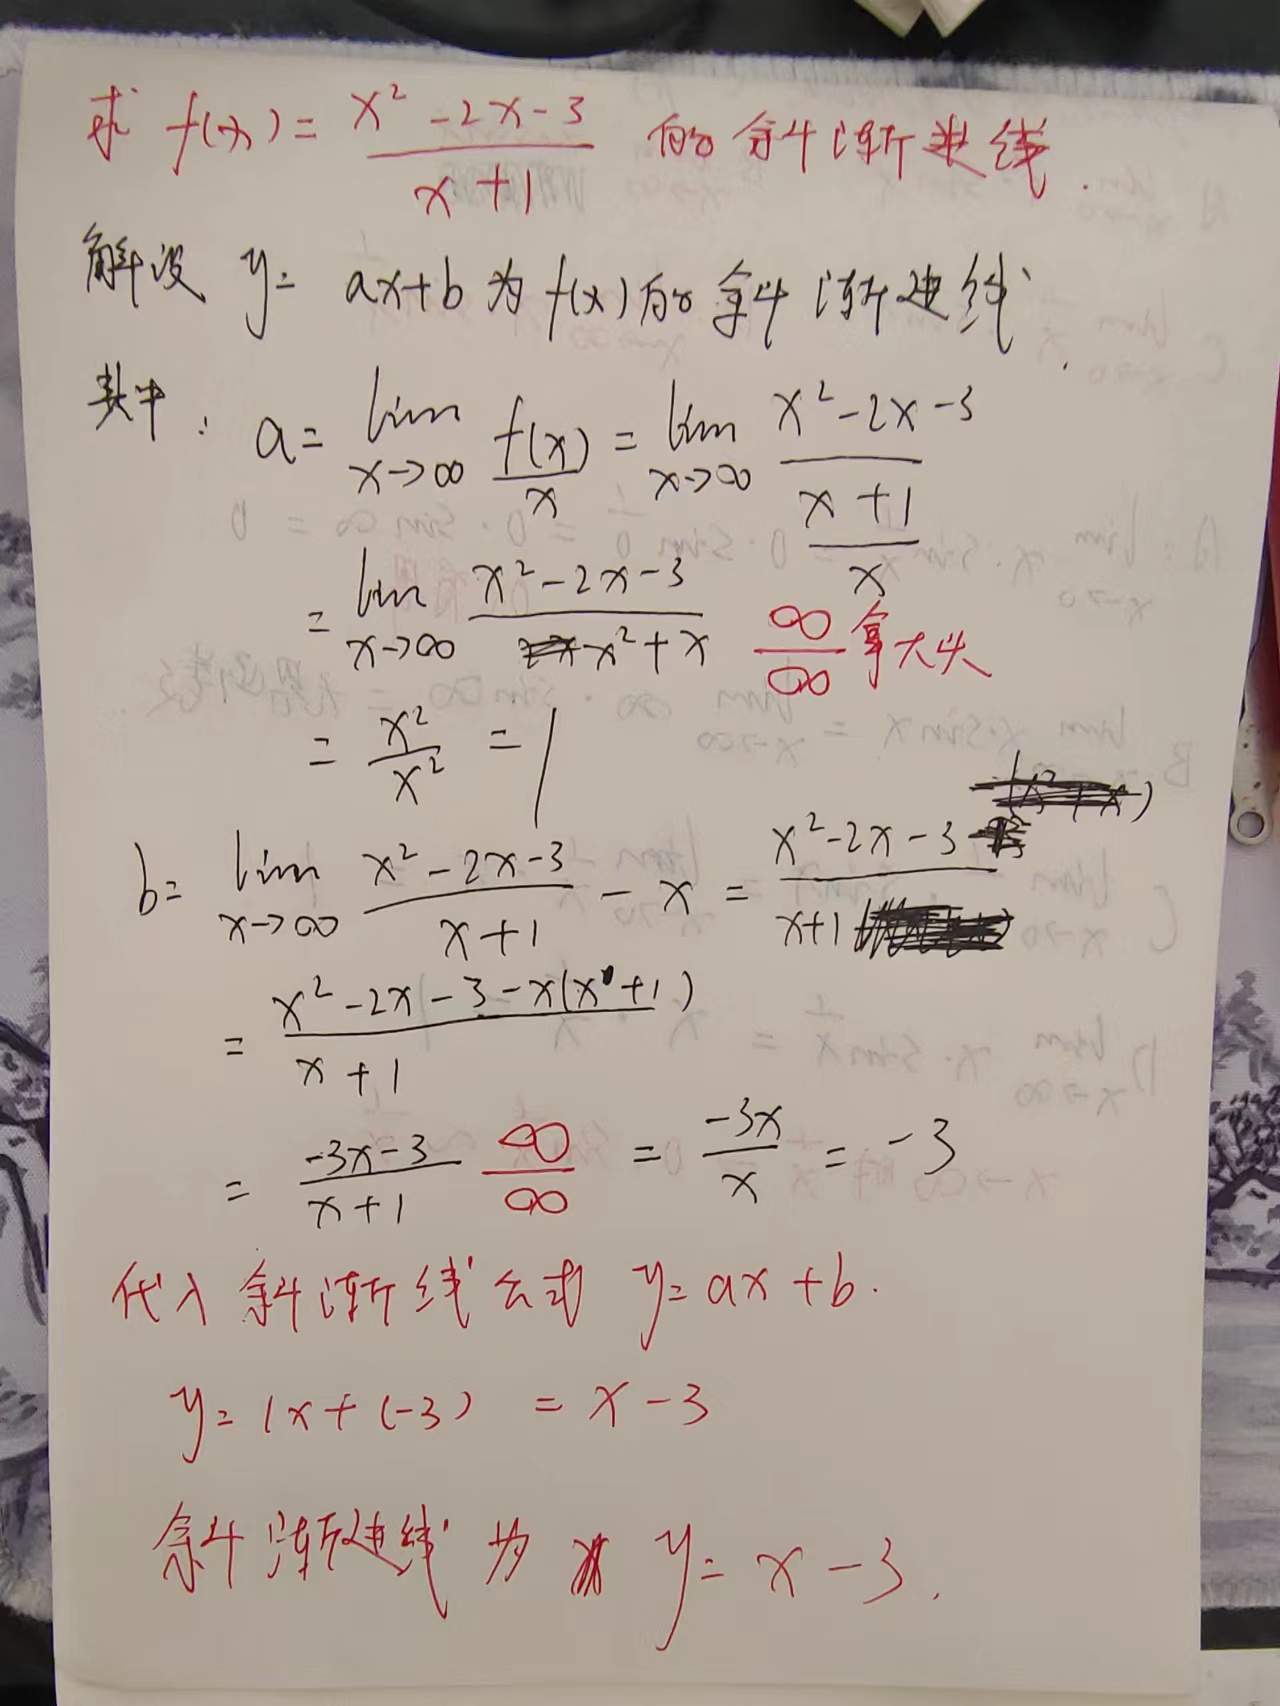 求 f(x) = x² - 2x - 3 / x + 1 的斜渐进线.
解设 y = ax+b 为 f(x) 的斜渐进线.
其中: a = lim x→∞ f(x)/x = lim x→∞ x² - 2x - 3 / x + 1 / x
= lim x→∞ x² - 2x - 3 / x² + x ∞/∞ 拿大头
= x²/x² = 1
b = lim x→∞ x² - 2x - 3 / x + 1 - x = x² - 2x - 3 / x+1
= x² - 2x - 3 - x(x+1) / x + 1
= -3x-3 / x+1 ∞/∞ = -3x/x = -3
代入斜渐线公式 y = ax + b.
y = 1x + (-3) = x - 3
斜渐进线为 y = x - 3.